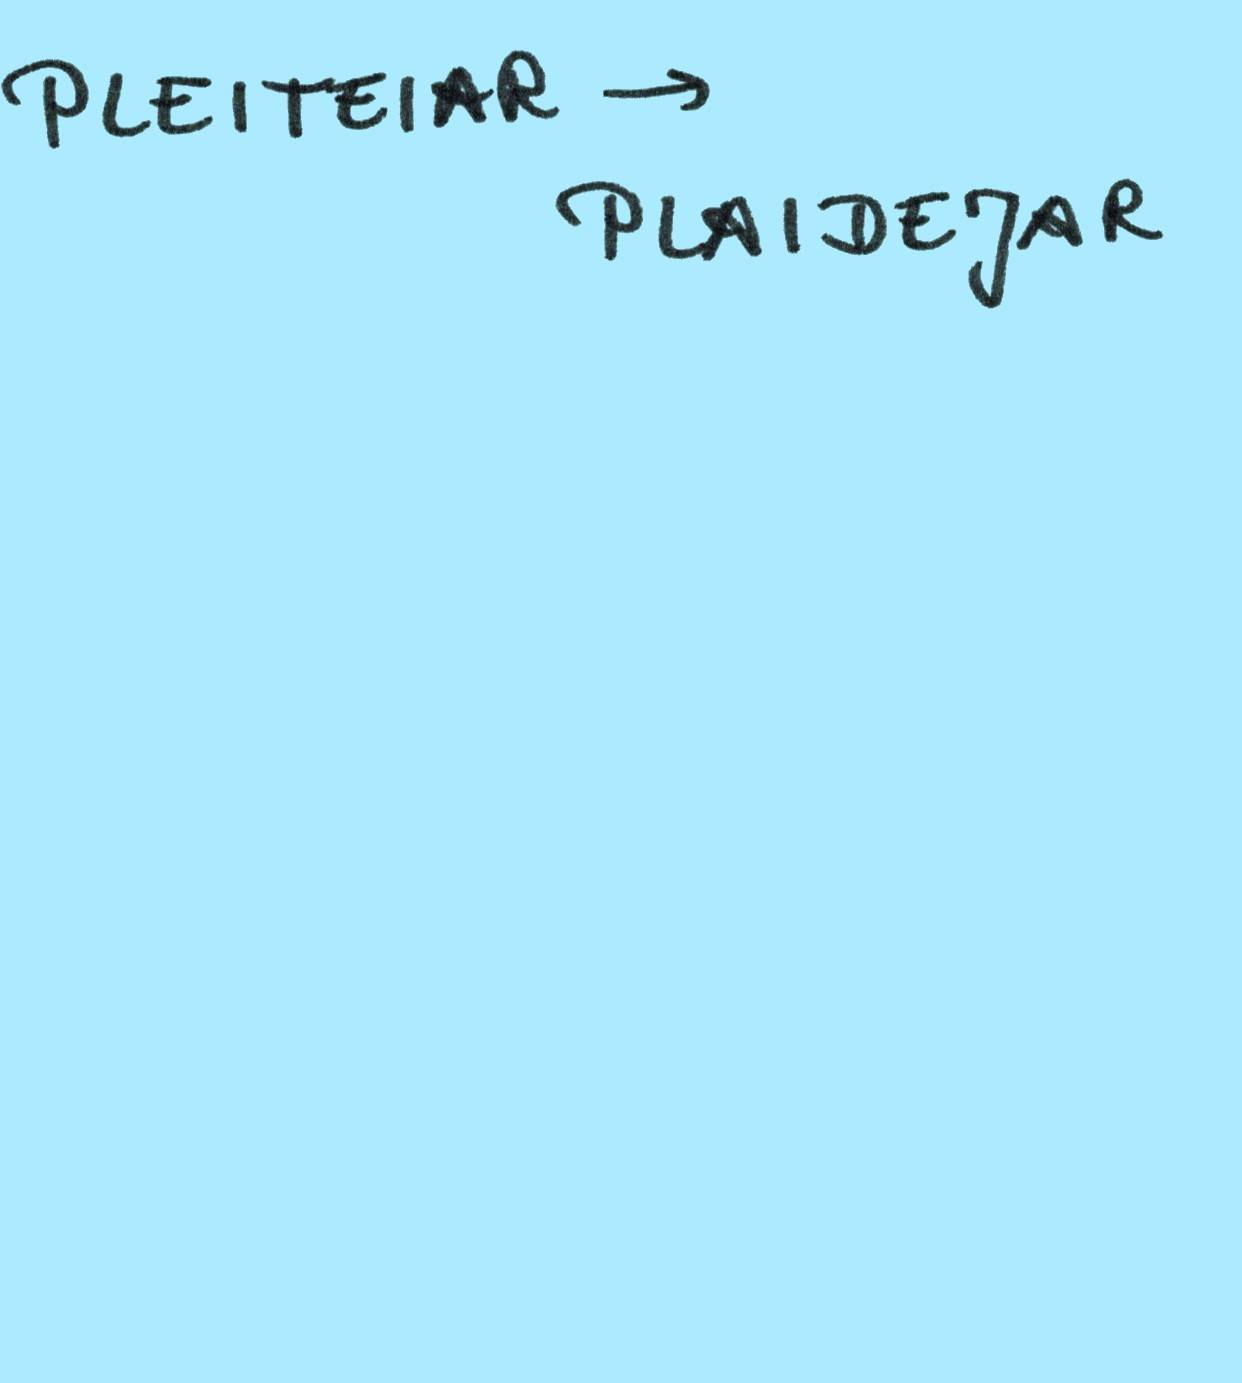 PLEITEIAR →
PLAIDEJAR